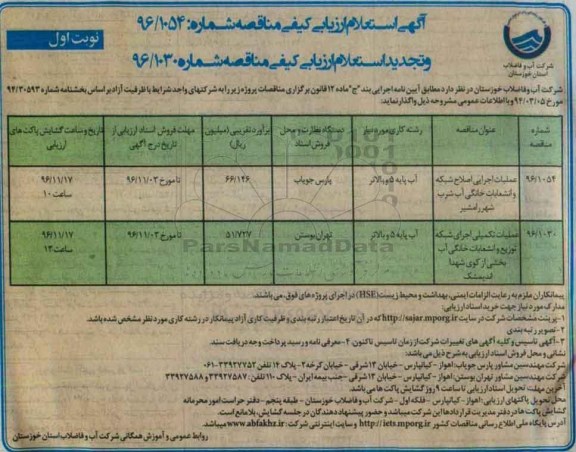 آگهی استعلام ارزیابی کیفی مناقصه شماره: ۹۶/۱۰۵۴
و تجدید استعلام ارزیابی کیفی مناقصه شماره ۹۶/۱۰۳۰
نوبت اول
شرکت آب و فاضلاب
استان خوزستان
شرکت آب و فاضلاب خوزستان در نظر دارد مطابق آیین نامه اجرایی بند "ج" ماده ۱۲ قانون برگزاری مناقصات پروژه زیر را به شرکتهای واجد شرایط با ظرفیت آزاد بر اساس بخشنامه شماره ۹۴/۳۰۵۹۳
مورخ ۹۴/۰۳/۰۵ و با اطلاعات عمومی مشروحه ذیل واگذار نماید:
شماره مناقصه
عنوان مناقصه
رشته کاری مورد نیاز
دستگاه نظارت و محل فروش اسناد
برآورد تقریبی (میلیون ریال)
مهلت فروش اسناد ارزیابی از تاریخ درج آگهی
تاریخ و ساعت گشایش پاکت های ارزیابی
۹۶/۱۰۵۴
عملیات اجرایی اصلاح شبکه و انشعابات خانگی آب شرب شهر رامشیر
آب پایه ۵ و بالاتر
پارس جویاب
۶۶/۱۴۶
تا مورخ ۹۶/۱۱/۰۳
۹۶/۱۱/۱۷
ساعت ۱۰
۹۶/۱۰۳۰
عملیات تکمیلی اجرای شبکه توزیع و انشعابات خانگی آب بخشی از کوی شهدا اندیمشک
آب پایه ۵ و بالاتر
تهران بوستن
۵۱/۷۲۷
تا مورخ ۹۶/۱۱/۰۳
۹۶/۱۱/۱۷
ساعت ۱۳
ParsNamadData
پیمانکاران ملزم به رعایت الزامات ایمنی، بهداشت و محیط زیست (HSE) در اجرای پروژه های فوق، می باشند.
مدارک مورد نیاز جهت خرید اسناد ارزیابی:
۱- پرینت مشخصات شرکت در سایت http://sajar.mporg.ir که در آن تاریخ اعتبار رتبه بندی و ظرفیت کاری آزاد پیمانکار در رشته کاری مورد نظر مشخص شده باشد.
۲- تصویر رتبه بندی
۳- آگهی تاسیس و کلیه آگهی های تغییرات شرکت از زمان تاسیس تاکنون ۴- معرفی نامه و رسید پرداخت وجه دریافت سند.
نشانی و محل فروش اسناد ارزیابی به شرح ذیل می باشد:
شرکت مهندسین مشاور پارس جویاب: اهواز - کیانپارس - خیابان ۱۳ شرقی - خیابان کرخه ۲ - پلاک ۱۴ تلفن: ۳۳۹۲۷۷۵۲-۰۶۱
شرکت مهندسین مشاور تهران بوستن: اهواز - کیانپارس - خیابان ۱۳ شرقی - جنب بیمه ایران - پلاک ۱۱۰ تلفن: ۳۳۹۲۷۵۸۷ و ۳۳۹۲۷۵۸۸
آخرین مهلت تحویل اسناد ارزیابی تا ساعت ۹ روز گشایش پاکت ها می باشد.
محل تحویل پاکتهای ارزیابی: اهواز - کیانپارس - فلکه اول - شرکت آب و فاضلاب خوزستان - طبقه پنجم - دفتر حراست امور محرمانه
گشایش پاکت ها در دفتر مدیریت قراردادها این شرکت میباشد و حضور پیشنهاد دهندگان در جلسه گشایش، بلامانع است.
آدرس پایگاه ملی اطلاع رسانی مناقصات کشور http://iets.mporg.ir و سایت اینترنتی شرکت: www.abfakhz.ir میباشد.
روابط عمومی و آموزش همگانی شرکت آب و فاضلاب استان خوزستان